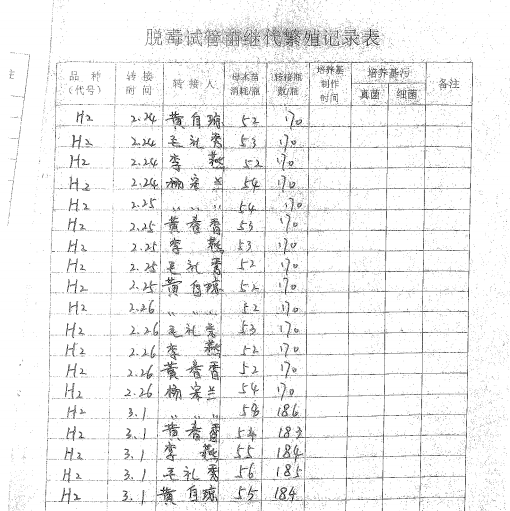 脱毒试管苗继代繁殖记录表
品种（代号） 转接时间 转接人 母本苗消耗/瓶 转接瓶数/瓶 培养基制作时间 培养基污 真菌 细菌 备注
H2 2.24 黄自琼 52 170
H2 2.24 毛礼秀 53 170
H2 2.24 李燕 52 170
H2 2.24 杨宗兰 54 170
H2 2.25 〃 〃 〃 54 170
H2 2.25 黄春香 53 170
H2 2.25 李燕 53 170
H2 2.25 毛礼秀 52 170
H2 2.25 黄自琼 52 170
H2 2.26 〃 〃 〃 52 170
H2 2.26 毛礼秀 53 170
H2 2.26 李燕 52 170
H2 2.26 黄春香 52 170
H2 2.26 杨宗兰 54 170
H2 3.1 〃 〃 〃 186
H2 3.1 黄春香 54 183
H2 3.1 李燕 55 184
H2 3.1 毛礼秀 56 185
H2 3.1 黄自琼 55 184